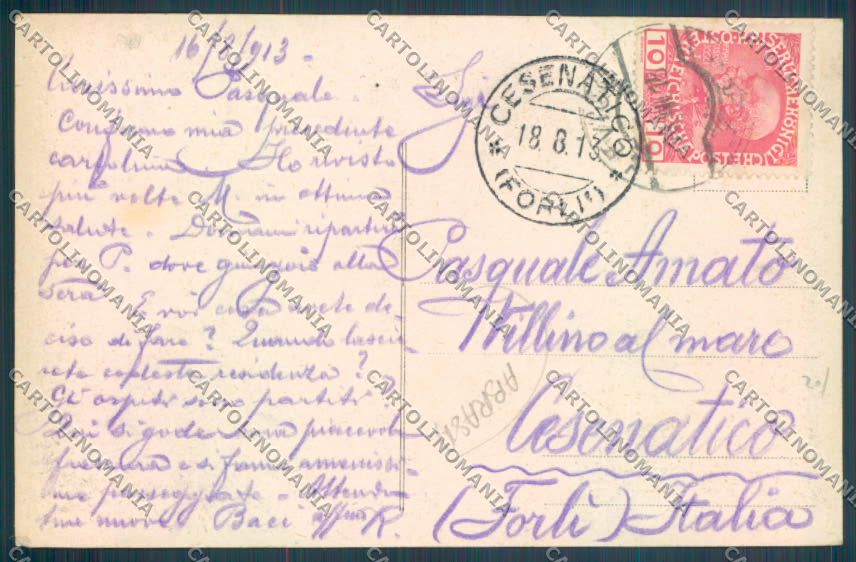 16/8/913 -
Carissimo Pasquale.
Confermo mia precedente
cartolina. Ho rivisto
più volte M. in ottima
salute. Domani ripartirò
per P. dove giungerò alla
sera. E voi cosa avete de-
ciso di fare? Quando lasce-
rete codesta residenza?
Gli ospiti sono partiti?
Qui si gode una piacevole
frescura e si fanno amenissi-
me passeggiate. Attendo
tue nuove. Baci affmo R.
Sig.
Pasquale Amato
Villino al mare
Cesenatico
(Forlì) Italia
CESENATICO
18.8.13
(FORLÌ)
10 10
ABRASA
CARTOLINOMANIA